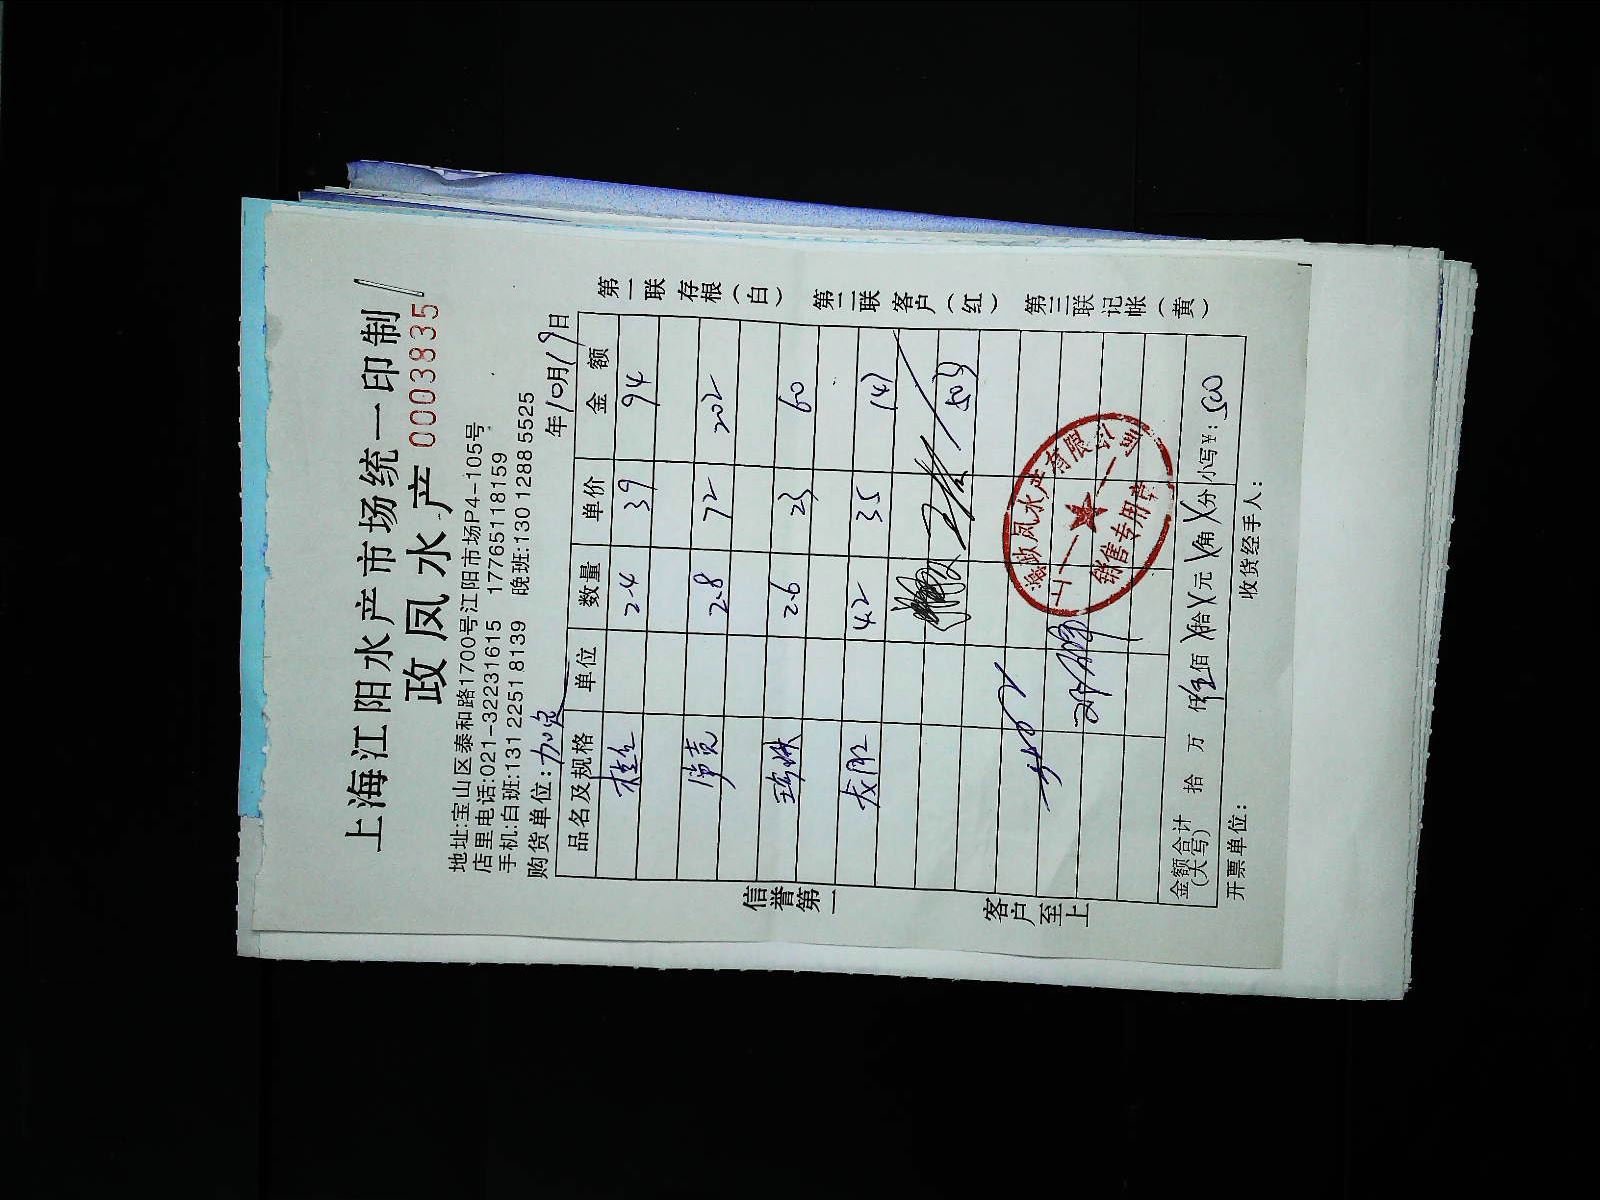 上海江阳水产市场统一印制
政凤水产 0003835
地址:宝山区泰和路1700号江阳市场P4-105号
店里电话:021-32231615 17765118159
手机:白班:13122518139 晚班:13012885525
购货单位:加定 年10月19日
品名及规格 单位 数量 单价 金额
桂鱼 2.4 39 94
2.8 72 202
2.6 23 60
4.2 35 147
503
金额合计(大写) 拾 万 仟伍佰 拾 元 角 分 小写¥:500
开票单位: 收货经手人:
信誉第一
客户至上
第一联存根(白)
第二联客户(红)
第三联记帐(黄)
上海政凤水产有限公司
销售专用章